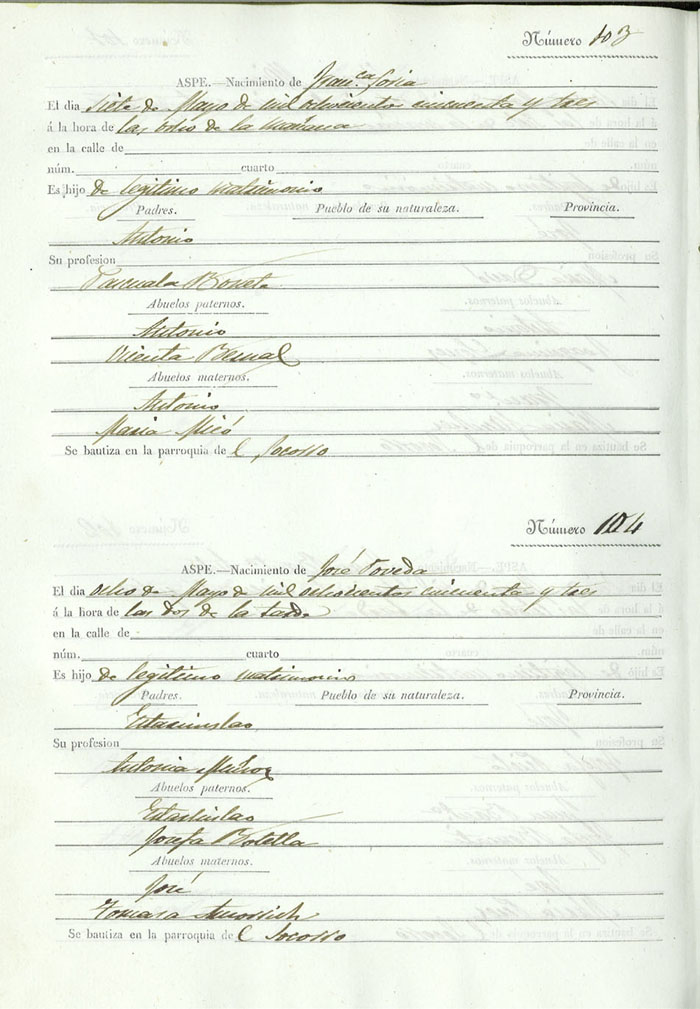 Número 103
ASPE.—Nacimiento de Fran.ca Soria
El dia siete de Mayo de mil ochocientos cincuenta y tres
á la hora de las ocho de la mañana
en la calle de
núm. cuarto
Es hijo de legitimo matrimonio
Padres. Pueblo de su naturaleza. Provincia.
Antonio
Su profesion
Pascuala Bonete
Abuelos paternos.
Antonio
Vicenta Bernal
Abuelos maternos.
Antonio
Maria Micó
Se bautiza en la parroquia de El Socosso
Número 104
ASPE.—Nacimiento de José Poveda
El dia ocho de Mayo de mil ochocientos cincuenta y tres
á la hora de las dos de la tarde
en la calle de
núm. cuarto
Es hijo de legitimo matrimonio
Padres. Pueblo de su naturaleza. Provincia.
Estanislao
Su profesion
Antonia Muñoz
Abuelos paternos.
Estanislao
Josefa Botella
Abuelos maternos.
José
Tomasa
Se bautiza en la parroquia de El Socosso